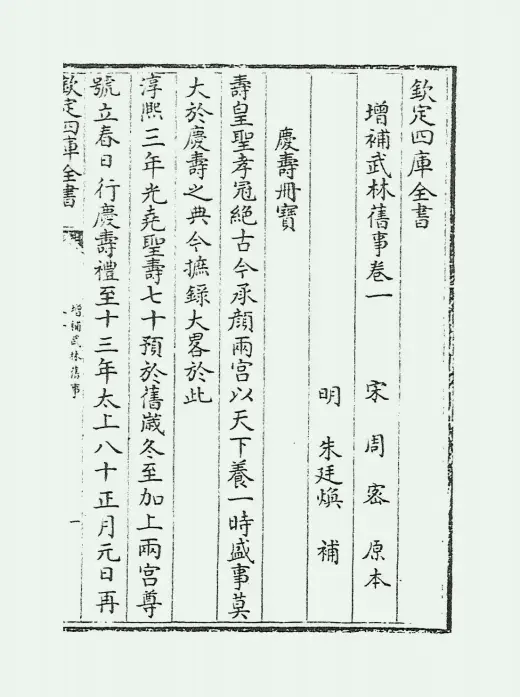 欽定四庫全書
增補武林舊事卷一
宋　周密　原本
明　朱廷煥　補
慶壽冊寶
壽皇聖孝冠絶古今承顔兩宮以天下養一時盛事莫
大於慶壽之典今摭錄大畧於此
淳熙三年光堯聖壽七十預於舊歲冬至加上兩宮尊
號立春日行慶壽禮至十三年太上八十正月元日再
欽定四庫全書
增補武林舊事
一